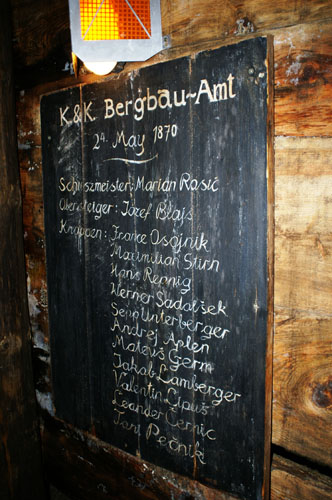 K&K Bergbau-Amt
24. May 1870
Schuszmeister: Marian Rosič
Obersteiger: Józef Blajs
Knappen: France Osojnik
Maximilian Stirn
Hans Repnig
Werner Sadolšek
Sepp Unterberger
Andrej Aplen
Matevš Germ
Jakob Lamberger
Valentin Cipuš
Leander Černic
Pečnik